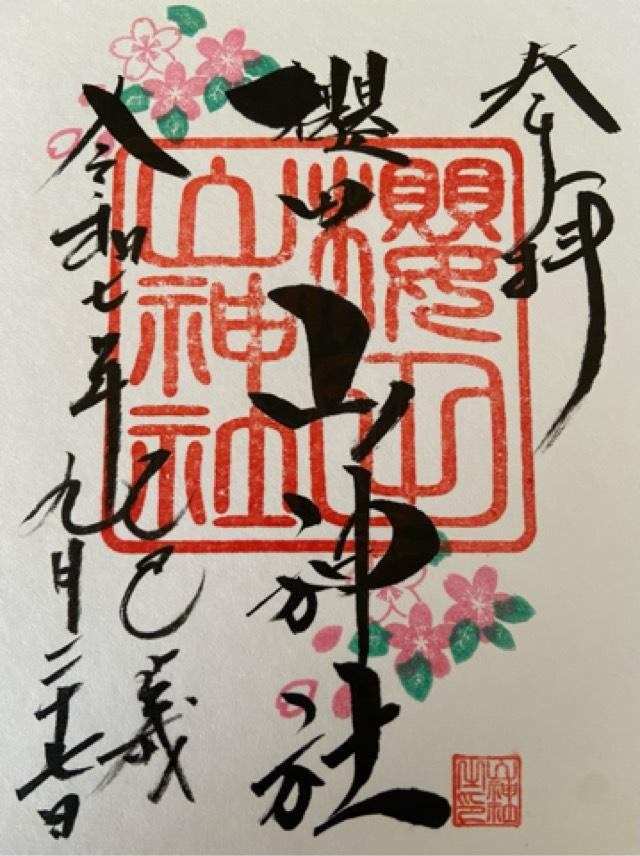 奉拝
櫻田山神社
令和七年
乙巳歳
九月二十七日
櫻田
山神社
山神社
之印